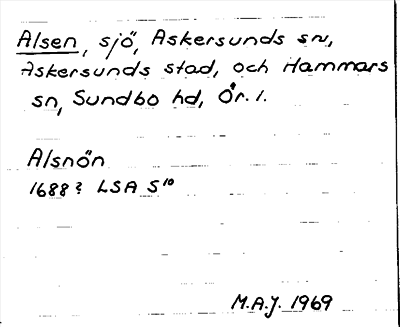 Alsen, sjö, Askersunds sn,
Askersunds stad, och Hammars
sn, Sundbo hd, Ör. l.
Alsnön
1688? LSA S¹⁰
M.A.J. 1969